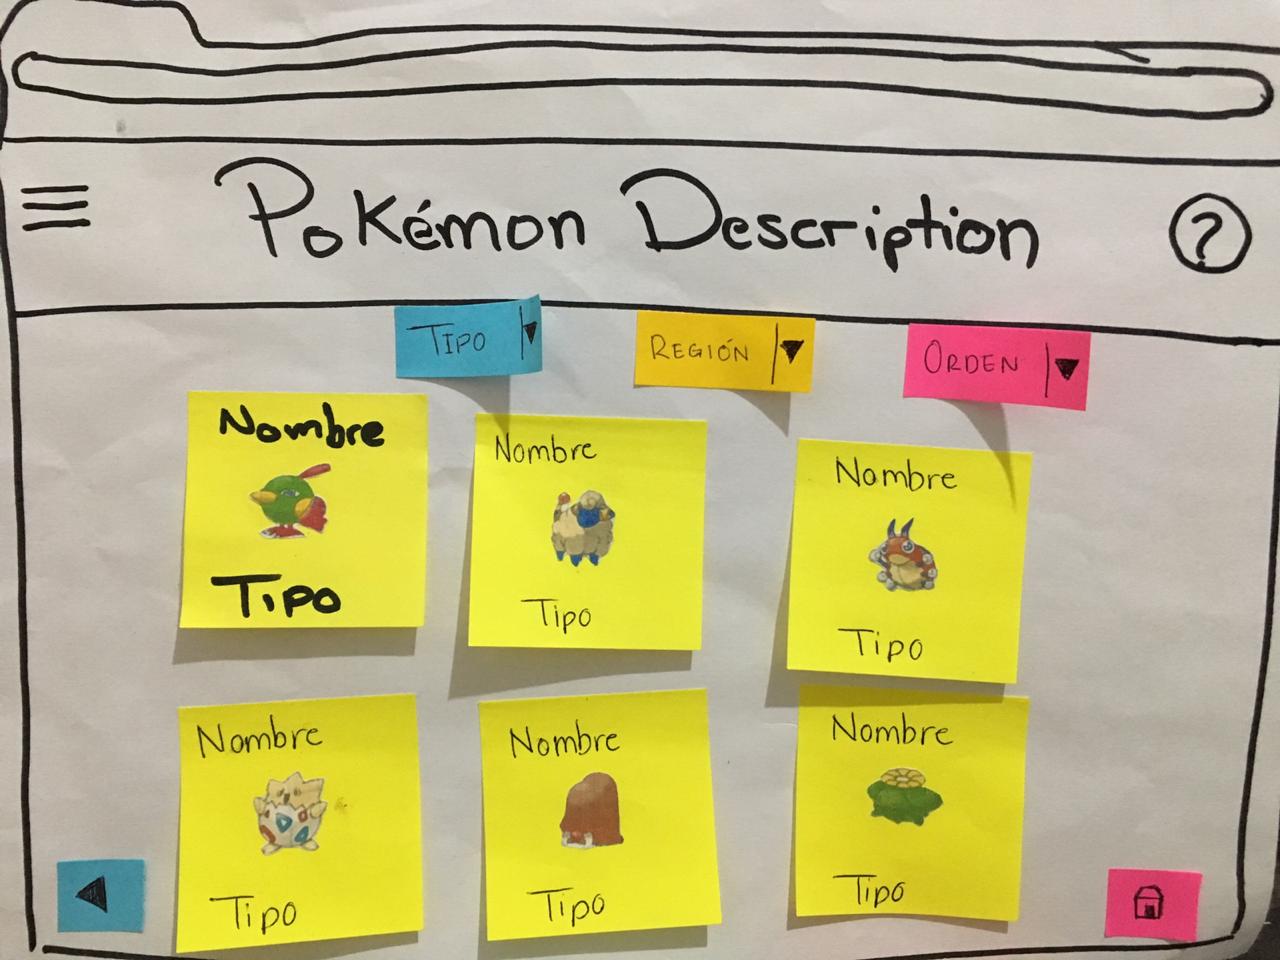 Pokémon Description
?
Tipo
Región
Orden
Nombre
Tipo
Nombre
Tipo
Nombre
Tipo
Nombre
Tipo
Nombre
Tipo
Nombre
Tipo